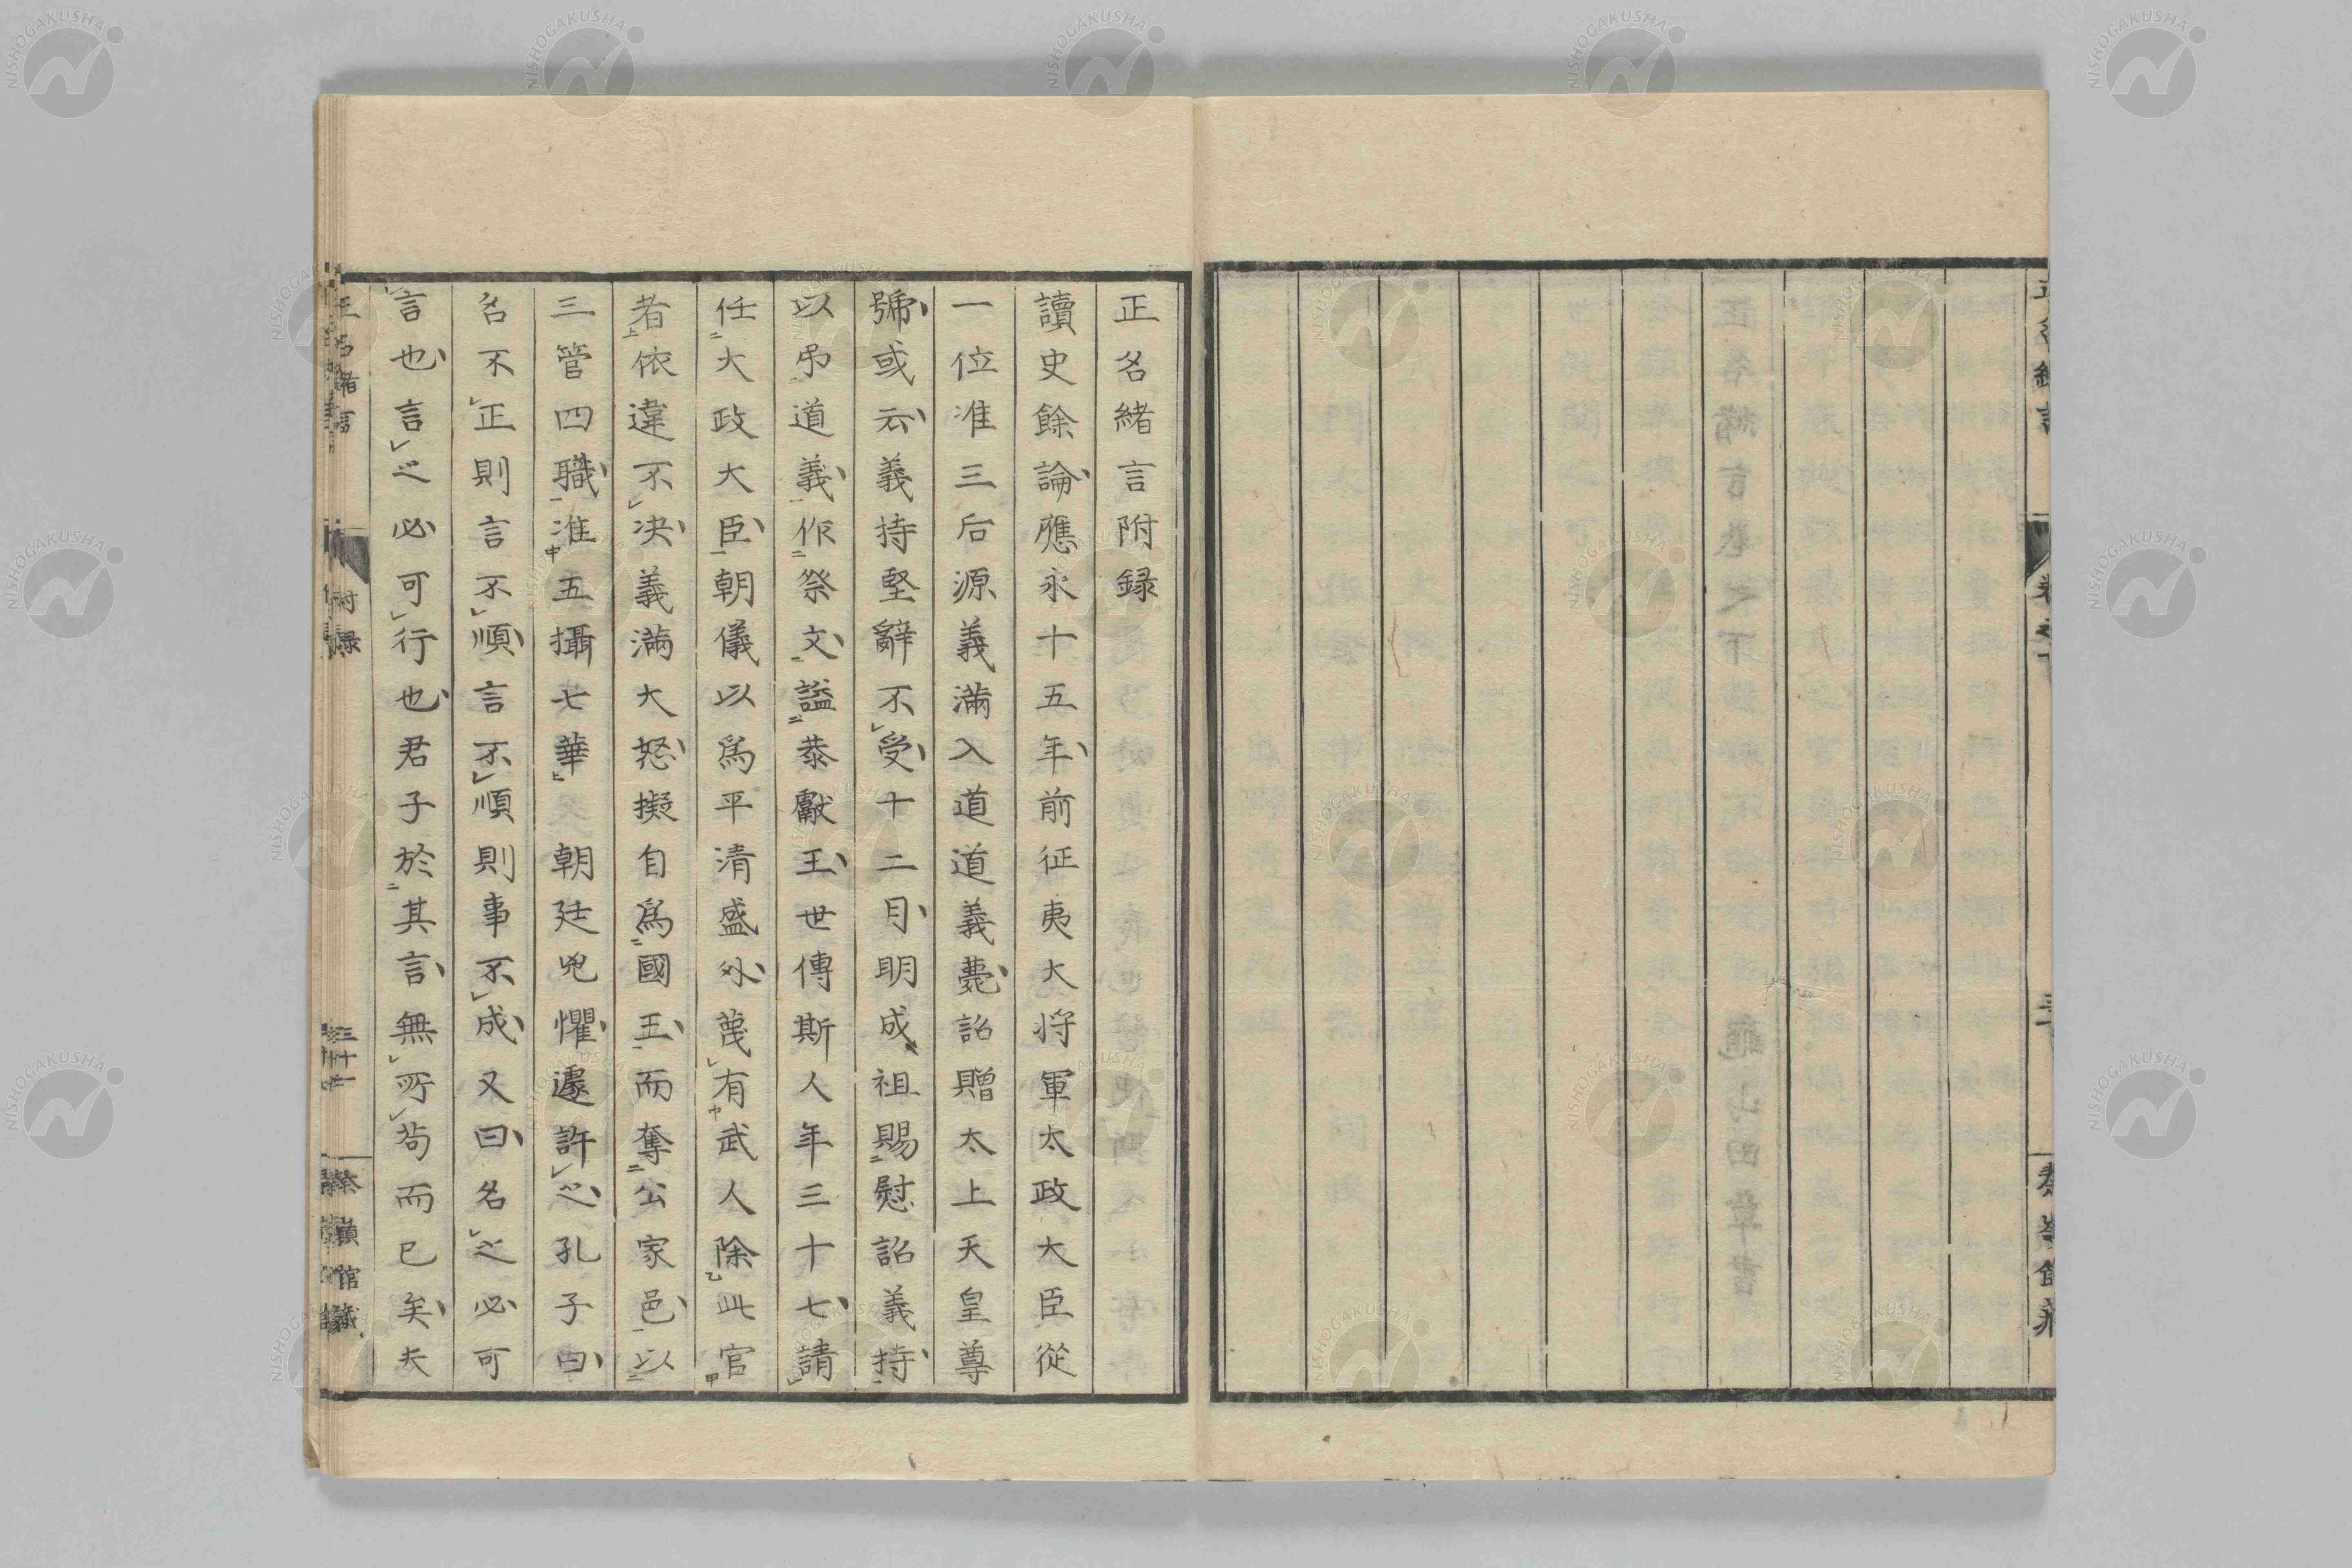 正名緒言附録
讀史餘論應永十五年前征夷大将軍太政大臣從
一位准三后源義滿入道道義薨詔贈太上天皇尊
號或云義持堅辭不受十二月明成祖賜慰詔義持
以弔道義作祭文謚恭獻王世傳斯人年三十七請
任大政大臣朝儀以爲平清盛外蔑有武人除此官
者依違不决義滿大怒擬自爲國王而奪公家邑以
三管四職准五攝七華朝廷兇懼遽許之孔子曰
名不正則言不順言不順則事不成又曰名之必可
言也言之必可行也君子於其言無所苟而已矣夫
正名緒言
附録
三十一
NISHOGAKUSHA